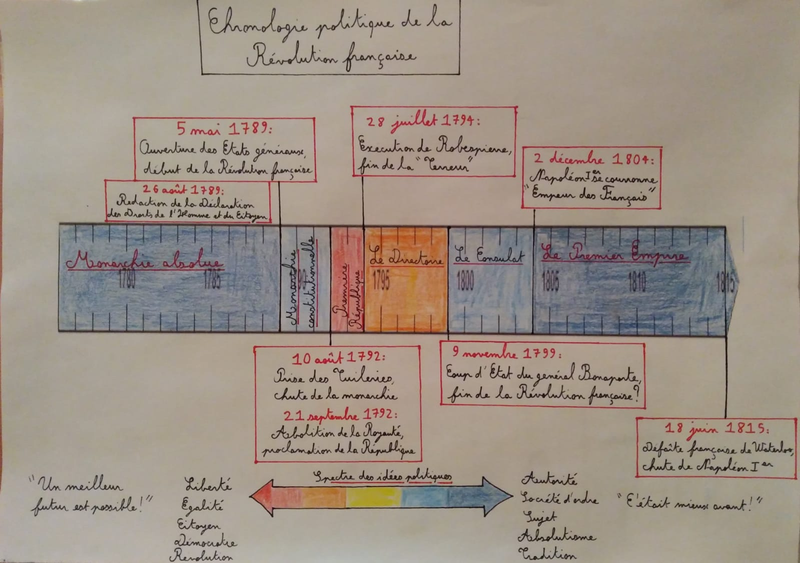 Chronologie politique de la
Révolution française
5 mai 1789:
Ouverture des Etats généraux,
début de la Révolution française
26 août 1789:
Rédaction de la Déclaration
des Droits de l'Homme et du Citoyen
28 juillet 1794:
Execution de Robespierre,
fin de la "Terreur"
2 décembre 1804:
Napoléon Ier se couronne
"Empereur des Français"
Monarchie absolue
Monarchie
constitutionnelle
Première
République
Le Directoire
Le Consulat
Le Premier Empire
1780
1785
1795
1800
1805
1810
1815
10 août 1792:
Prise des Tuileries,
chute de la monarchie
21 septembre 1792:
Abolition de la Royauté,
proclamation de la République
9 novembre 1799:
Coup d'Etat du général Bonaparte,
fin de la Révolution française?
18 juin 1815:
Défaite française de Waterloo,
chute de Napoléon Ier
"Un meilleur
futur est possible!"
Liberté
Egalité
Citoyen
Démocratie
Révolution
Spectre des idées politiques
Autorité
Société d'ordre
Sujet
Absolutisme
Tradition
"C'était mieux avant!"